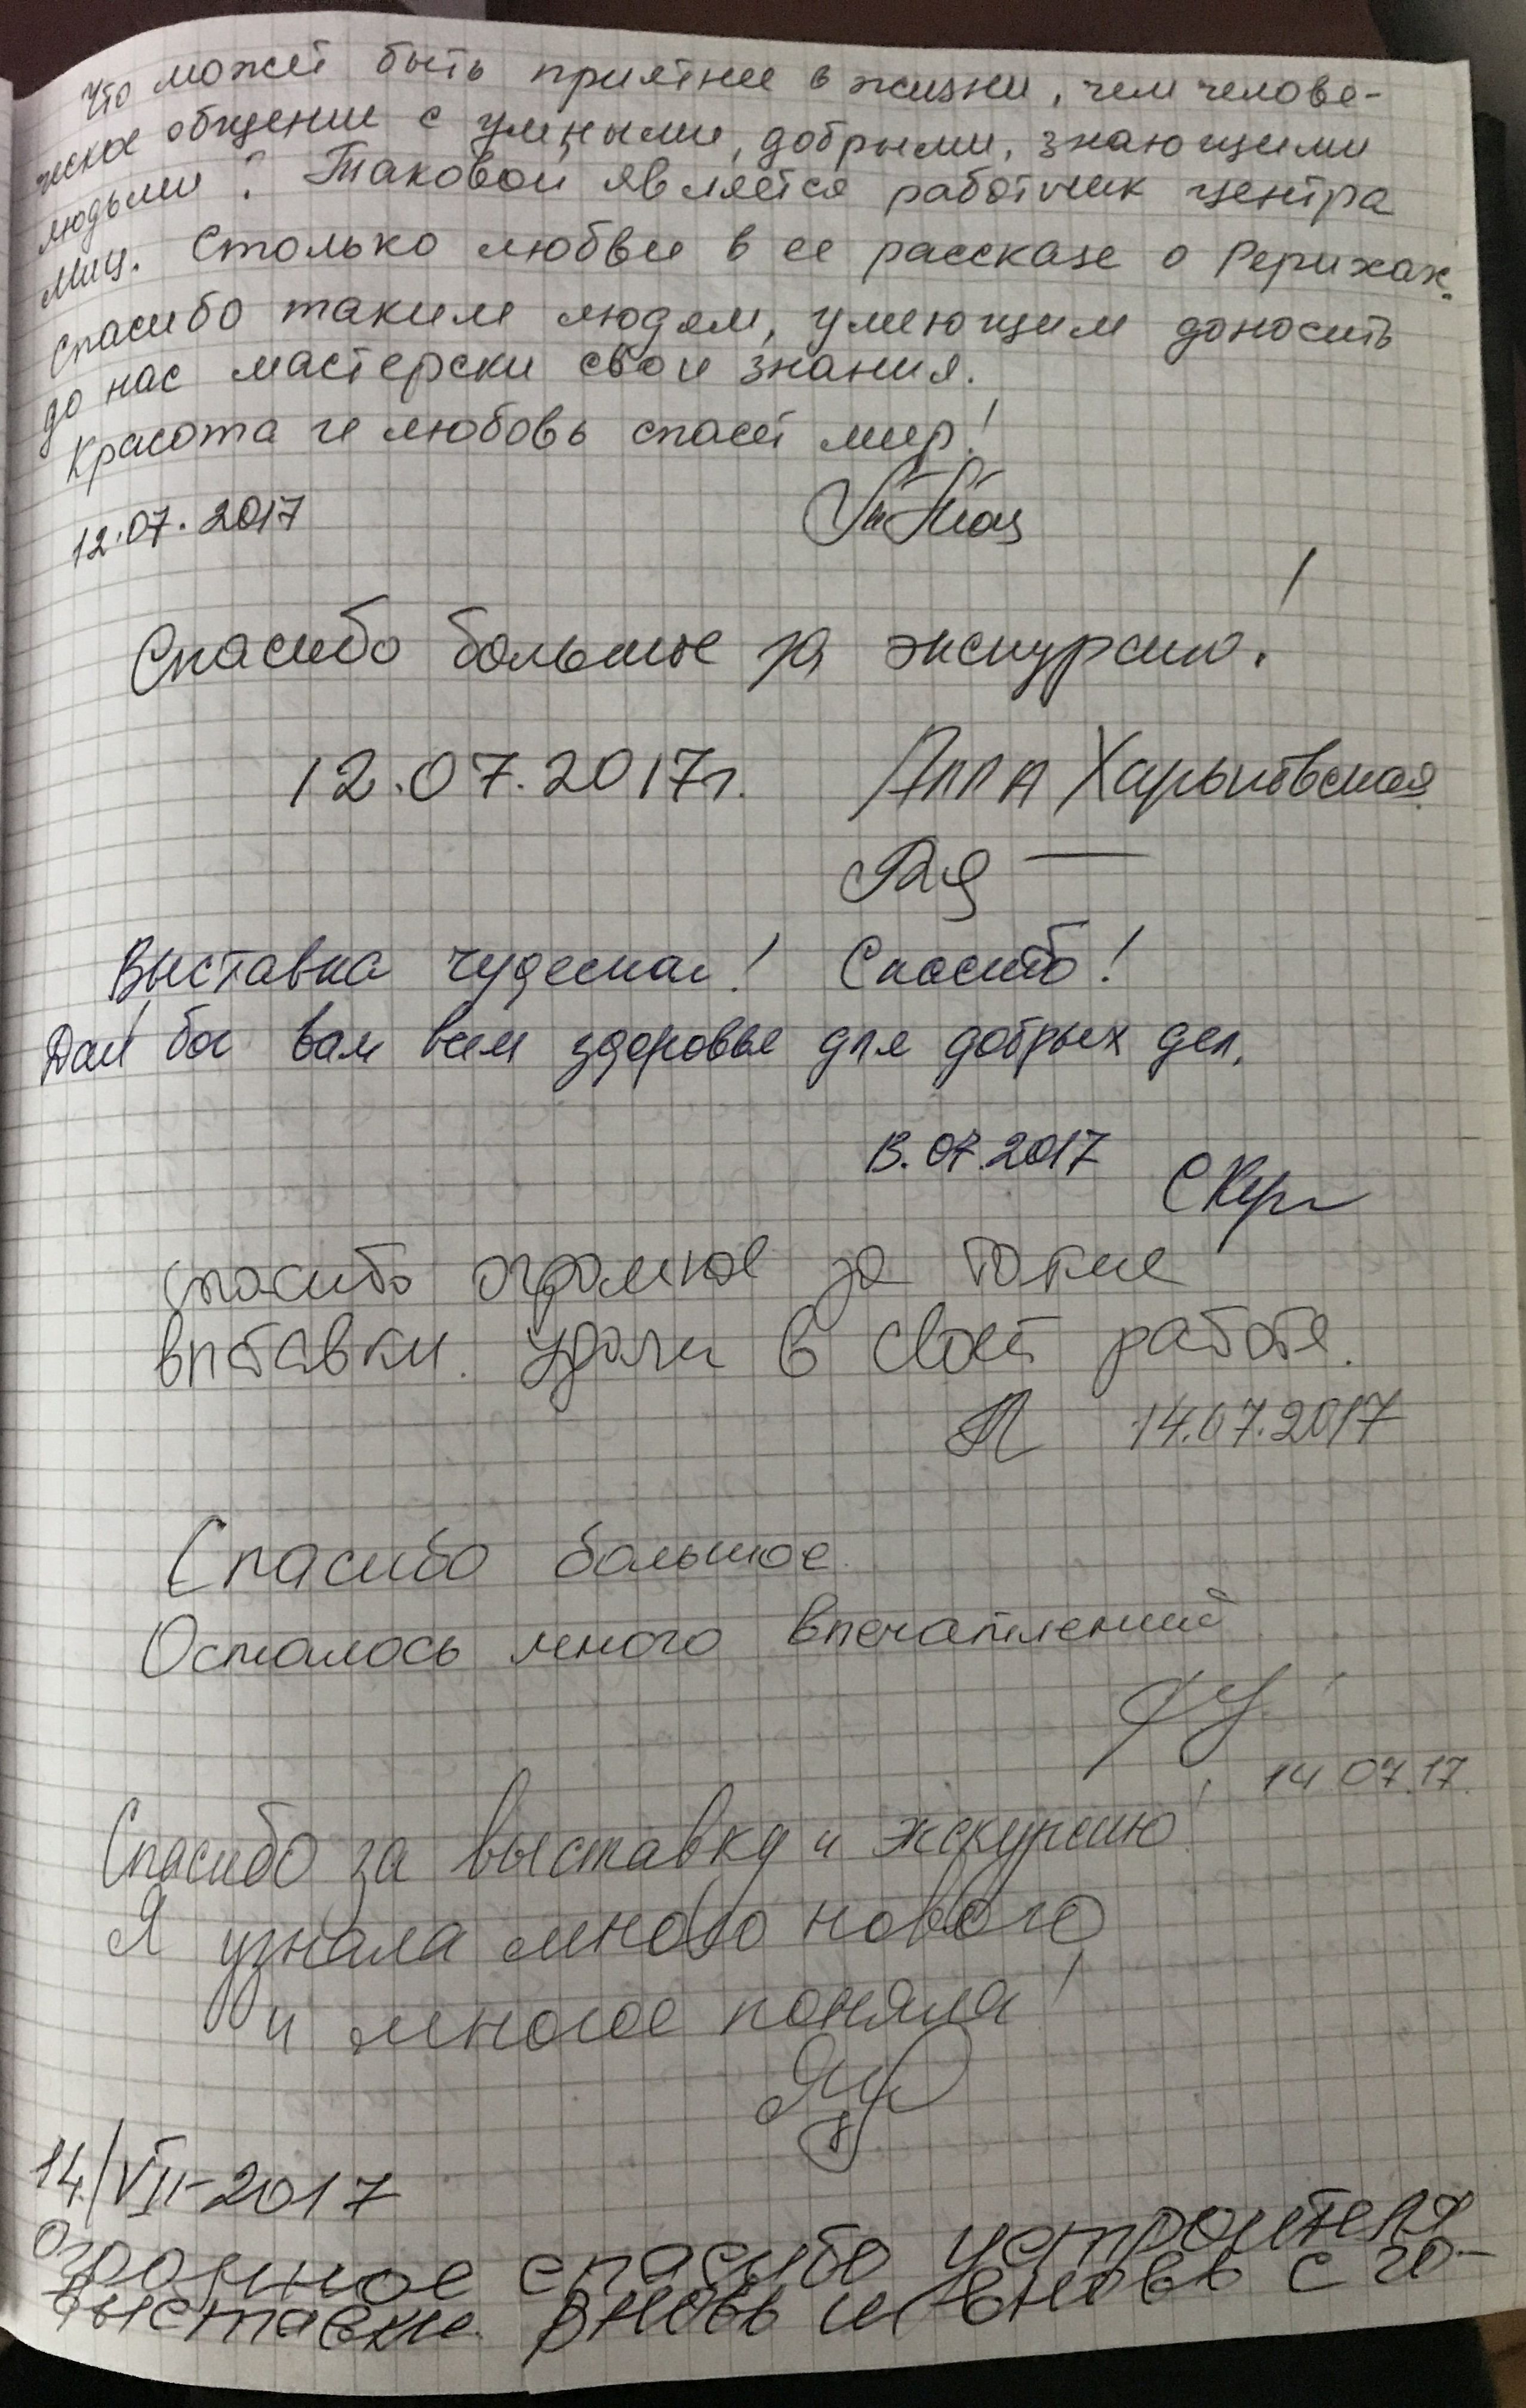 Что можеt быть приятнее в жизни, чем челове-
ческое общение с умными, добрыми, знающими
людьми? Таковой является работник центра
МЦ. Столько любви в ее рассказе о Рерихах.
Спасибо таким людям, умеющим доносить
до нас мастерски свои знания.
Красота и любовь спасет мир!
12.07.2017
Спасибо большое за экскурсию!
12.07.2017г. Алла Харьковская
Выставка чудесная! Спасибо!
Дай бог вам всем здоровье для добрых дел.
13.07.2017
Спасибо огромное за такие
выставки. Удачи в своей работе.
14.07.2017
Спасибо большое.
Осталось много впечатлений
14.07.17.
Спасибо за выставку и экскурсию!
Я узнала много нового
и многое поняла!
14/VII-2017
Огромное спасибо устроителя
выставки. Вновь и вновь с го-